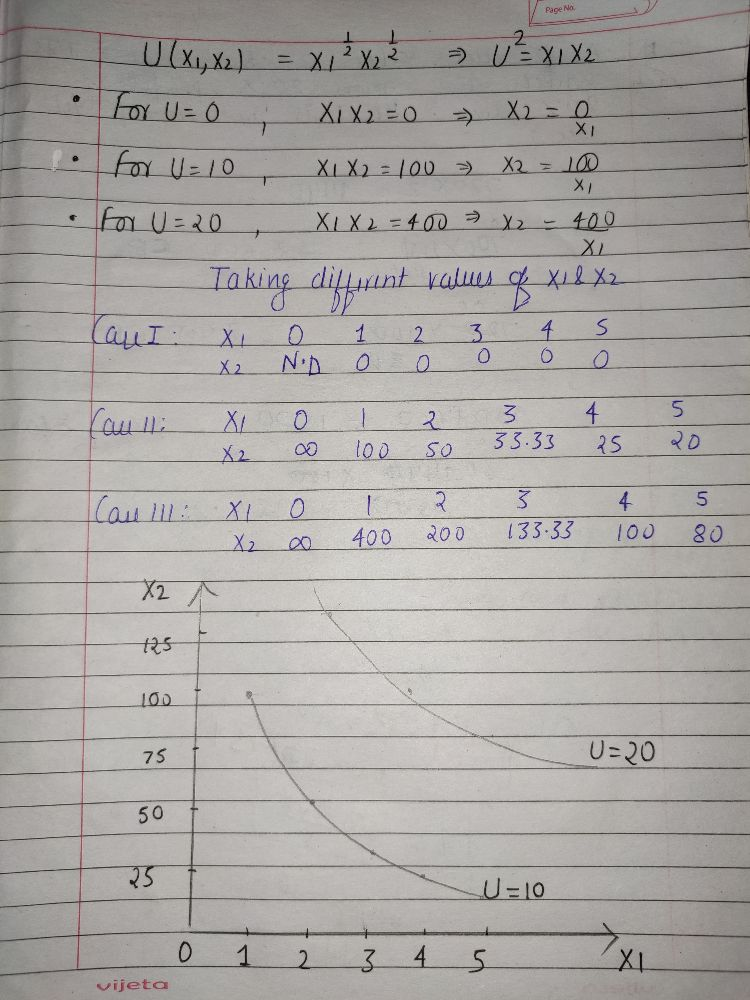 Page No.
U(x1,x2) = x1^1/2 x2^1/2 ⇒ U^2 = x1x2
• For U=0 , x1x2=0 ⇒ x2 = 0/x1
• For U=10 , x1x2=100 ⇒ x2 = 100/x1
• For U=20 , x1x2=400 ⇒ x2 = 400/x1
Taking different values of x1 & x2
Case I: x1 0 1 2 3 4 5
x2 N.D 0 0 0 0 0
Case II: x1 0 1 2 3 4 5
x2 ∞ 100 50 33.33 25 20
Case III: x1 0 1 2 3 4 5
x2 ∞ 400 200 133.33 100 80
x2
125
100
75
U=20
50
25
U=10
0 1 2 3 4 5 x1
vijeta